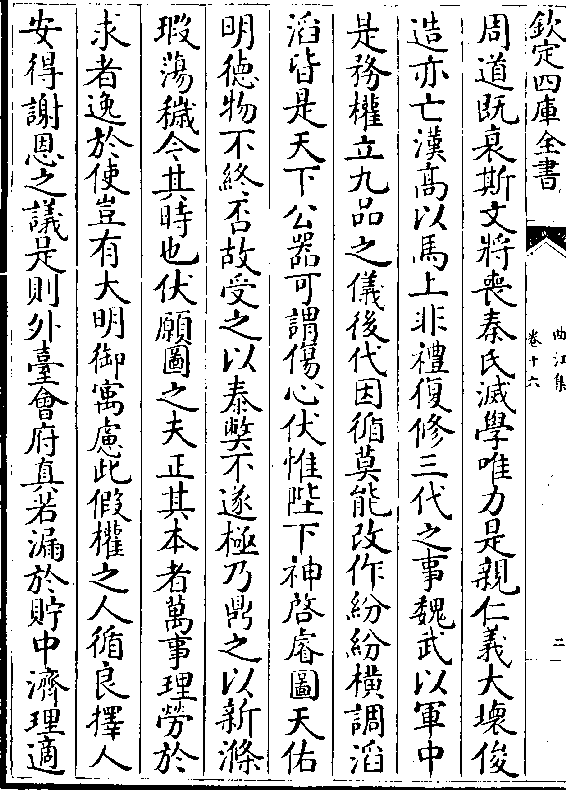 欽定四庫全書
曲江集
卷十六
二
周道既衰斯文將喪秦氏滅學唯力是親仁義大壞俊
造亦亡漢高以馬上非禮復修三代之事魏武以軍中
是務權立九品之儀後代因循莫能改作紛紛橫調滔
滔皆是天下公器可謂傷心伏惟陛下神啓睿圖天佑
明徳物不終否故受之以泰獘不遂極乃鼎之以新滌
瑕蕩穢今其時也伏願圖之夫正其本者萬事理勞於
求者逸於使豈有大明御寓慮此假權之人循良擇人
安得謝恩之議是則外臺會府真若漏於貯中濟理適